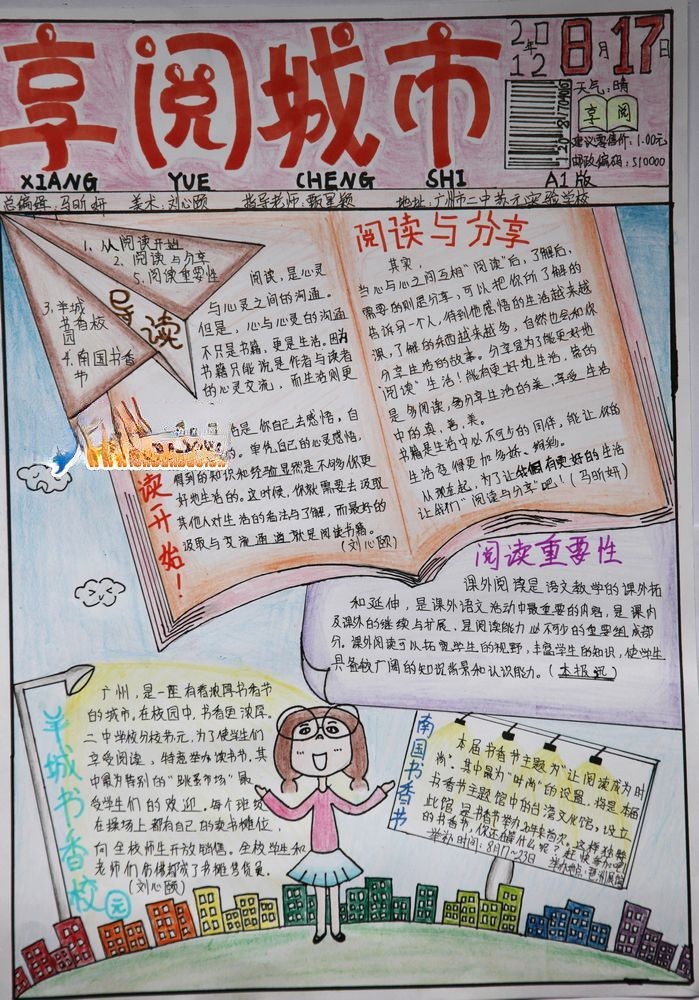 享阅城市
XIANG YUE CHENG SHI
2012年8月17日
天气:晴
享阅
建议零售价:1.00元
邮政编码:510000
A1版
总编辑:马昕妍 美术:刘心颐 指导老师:甄里颖 地址:广州市二中苏元实验学校
导读
1、从阅读开始
2、阅读与分享
5、阅读重要性
3、羊城
书香校
园
4、南国书香
书
阅读,是心灵
与心灵之间的沟通。
但是,心与心灵的沟通
不只是书籍,更是生活。因为
书籍只能说是作者与读者
的心灵交流,而生活则更
是你自己去感悟,自
单凭自己的心灵感悟,
得到的知识和经验显然是不够你更
好地生活的。这时候,你就需要去汲取
其他人对生活的看法与了解,而最好的
汲取与交流通道就是阅读书籍。
(刘心颐)
读开始!
阅读与分享
其实,
当心与心之间互相“阅读”后,了解后,
需要的则是分享,可以把你所了解的
告诉另一个人,得到他感悟的生活越来越
深,了解的东西越来越多,自然也会和你
分享生活的故事。分享是为了能更好地
“阅读”生活!能有更好地生活,常的
是多阅读,多分享生活的美,享受生活
中的真,善,美。
书籍是生活中必不可少的同伴,能让你的
生活变得更加多娇、绚丽。
从现在起,为了让我们有更好的生活
让我们“阅读与分享”吧!(马昕妍)
阅读重要性
课外阅读是语文教学的课外拓
和延伸,是课外语文活动中最重要的内容,是课内
及课外的继续与扩展,是阅读能力必不可少的重要组成部
分。课外阅读可以拓宽学生的视野,丰富学生的知识,使学生
具备较广阔的知识背景和认识能力。(本报迅)
羊城书香校园
广州,是一座有着浓厚书香节
的城市。在校园中,书香更浓厚。
二中学校分校苏元,为了使学生们
享受阅读、特意举办读书节。其
中最为特别的“跳蚤市场”最
受学生们的欢迎。每个班级
在操场上都有自己的卖书摊位,
向全校师生开放销售。全校学生和
老师们仿佛都成了书摊售货员。
(刘心颐)
南国书香节
本届书香节主题为“让阅读成为时
尚”。其中最为“时尚”的设置,将是本届
书香节主题馆中的台湾文化馆,设立
此馆是书香节举办20年来首次。这样独特
的书香节,你还在等什么呢?赶快参加吧
举办时间:8月17~23日
举办地点:琶洲展馆